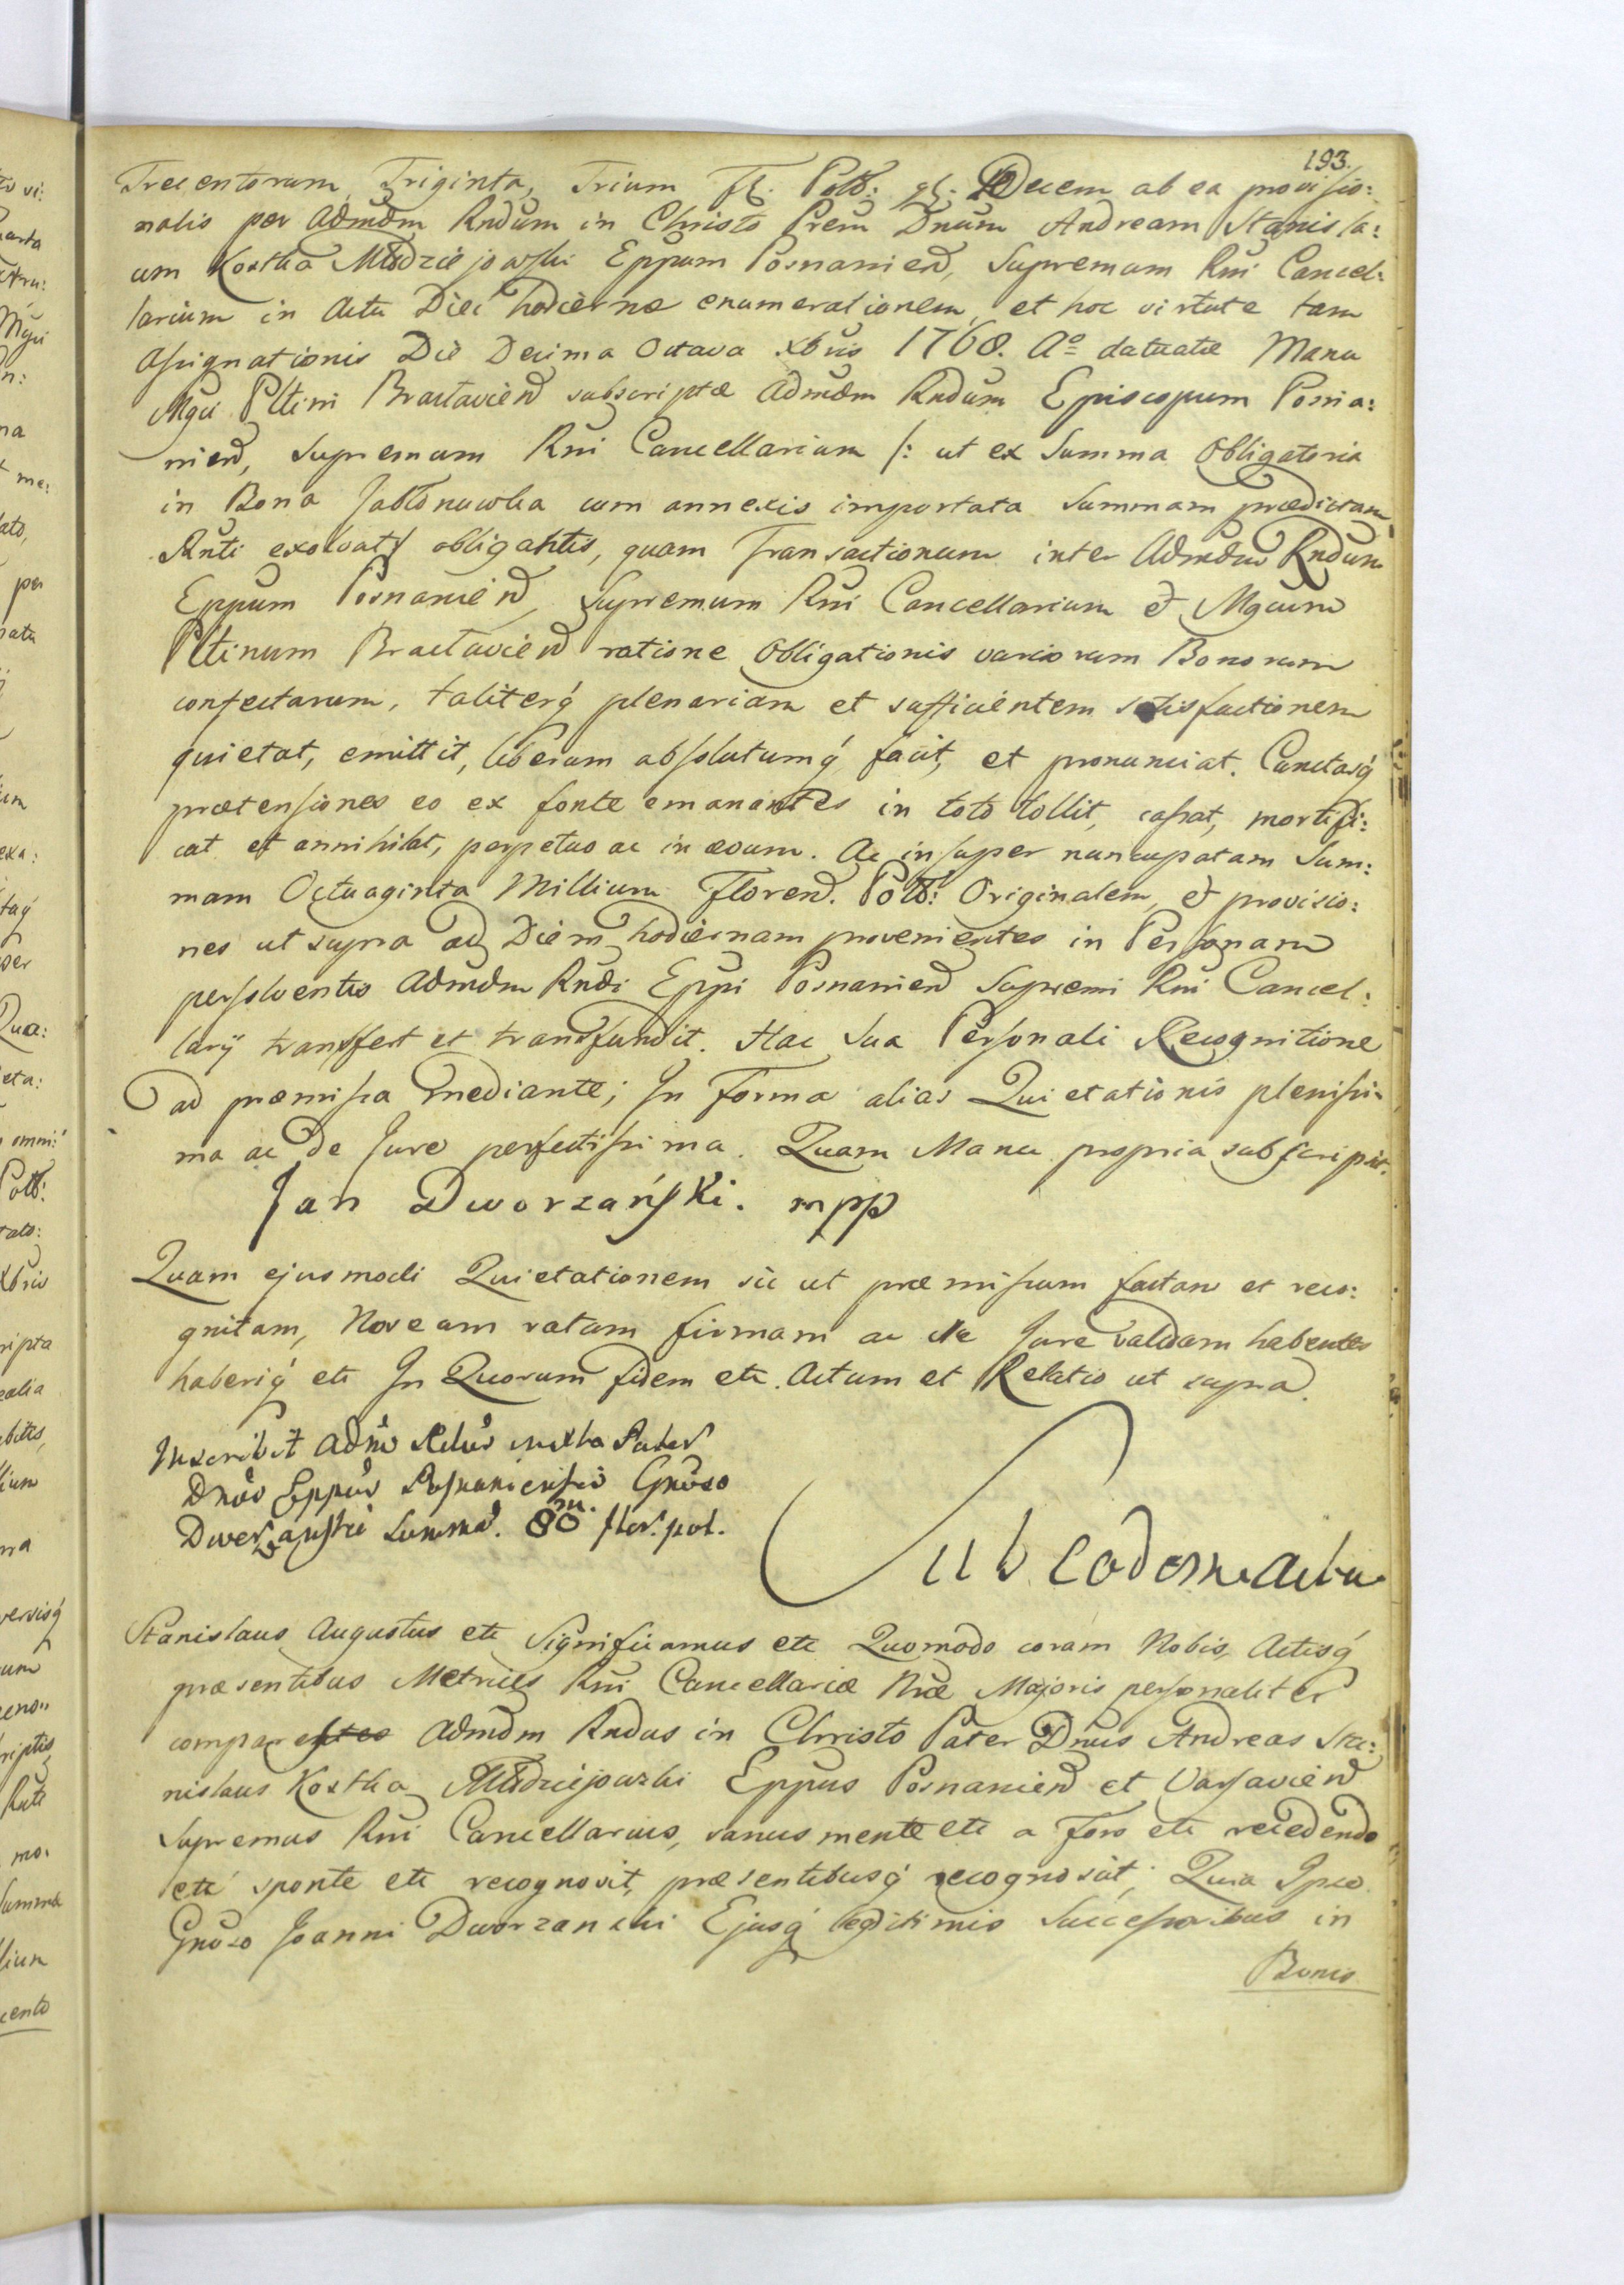 193.
Trecentorum Triginta, Trium Fl. Poll: gl. Decem ab ea provisio:
nalis per Admdm Rndum in Christo Prem Dnum Andream Stanisla:
um Kostka Młodziejowski Eppum Posnanien, Supremum Rni Cancel:
larium in Actu Diei hodiernæ enumerationem, et hoc virtute tam
Assignationis Die Decima Octava Xbris 1768. Aº datuatæ Manu
Mgci Pltini Bractavien subscriptæ Admdm Rndum Episcopum Posna:
nien, Supremum Rni Cancellarium /: ut ex Summa Obligatoria
in Bona Jabłonowka cum annexis importata Summam prædictam
Rnti exolvat / obligantis, quam Transactionum inter Admdum Rndum
Eppum Posnanien, Supremum Rni Cancellarium et Mgcum
Pltinum Bractavien ratione Obligationis variorum Bonorum
confectarum, taliterq́ plenariam et sufficientem satisfactionem
quietat, emittit, liberum absolutumq́ facit, et pronunciat. Cunctasq́
prætensiones eo ex fonte emanantes in toto tollit, cassat, mortifi:
cat et annihilat, perpetuo ac in ævum. Ac insuper nuncupatam Sum:
mam Octuaginta Millium Floren. Poll: Originalem, et provisio:
nes ut supra ad Diem hodiernam provenientes in Personam
persolventis Admdm Rndi Eppi Posnanien Supremi Rni Cancel:
larÿ transfert et transfundit. Hac Sua Personali Recognitione
ad præmissa mediante; In Forma alias Quietationis plenissi-
ma ac de Jure perfectissima. Quam Manu propria subscripsit.
Jan Dworzański. mpp
Quam ejusmodi Quietationem sic ut præmissum factam et reco:
gnitam, Nos eam ratam firmam ac de Jure validam habentes
haberiq́ etc In Quorum fidem etc. Actum et Relatio ut supra.
Inscribit Adm Rdus in Xto Pater
Dnus Eppus Posnaniensis Gnoso
Dworzański Summã. 80 m. flor. pol.
Sub eodem actu
Stanislaus Augustus etc Significamus etc Quomodo coram Nobis, Actisq́
præsentibus Metrices Rni Cancellariæ Nræ Majoris personaliter
comparentes Admdm Rndus in Christo Pater Dnus Andreas Sta:
nislaus Kostka Młodziejowski Eppus Posnanien et Varsavien
Supremus Rni Cancellarius, sanus mente etc a foro etc recedendo
etc sponte etc recognovit, præsentibusq́ recognoscit; Quia Ipse
Gnoso Joanni Dworzanski Ejusq́ legitimis Successoribus in
Bonis